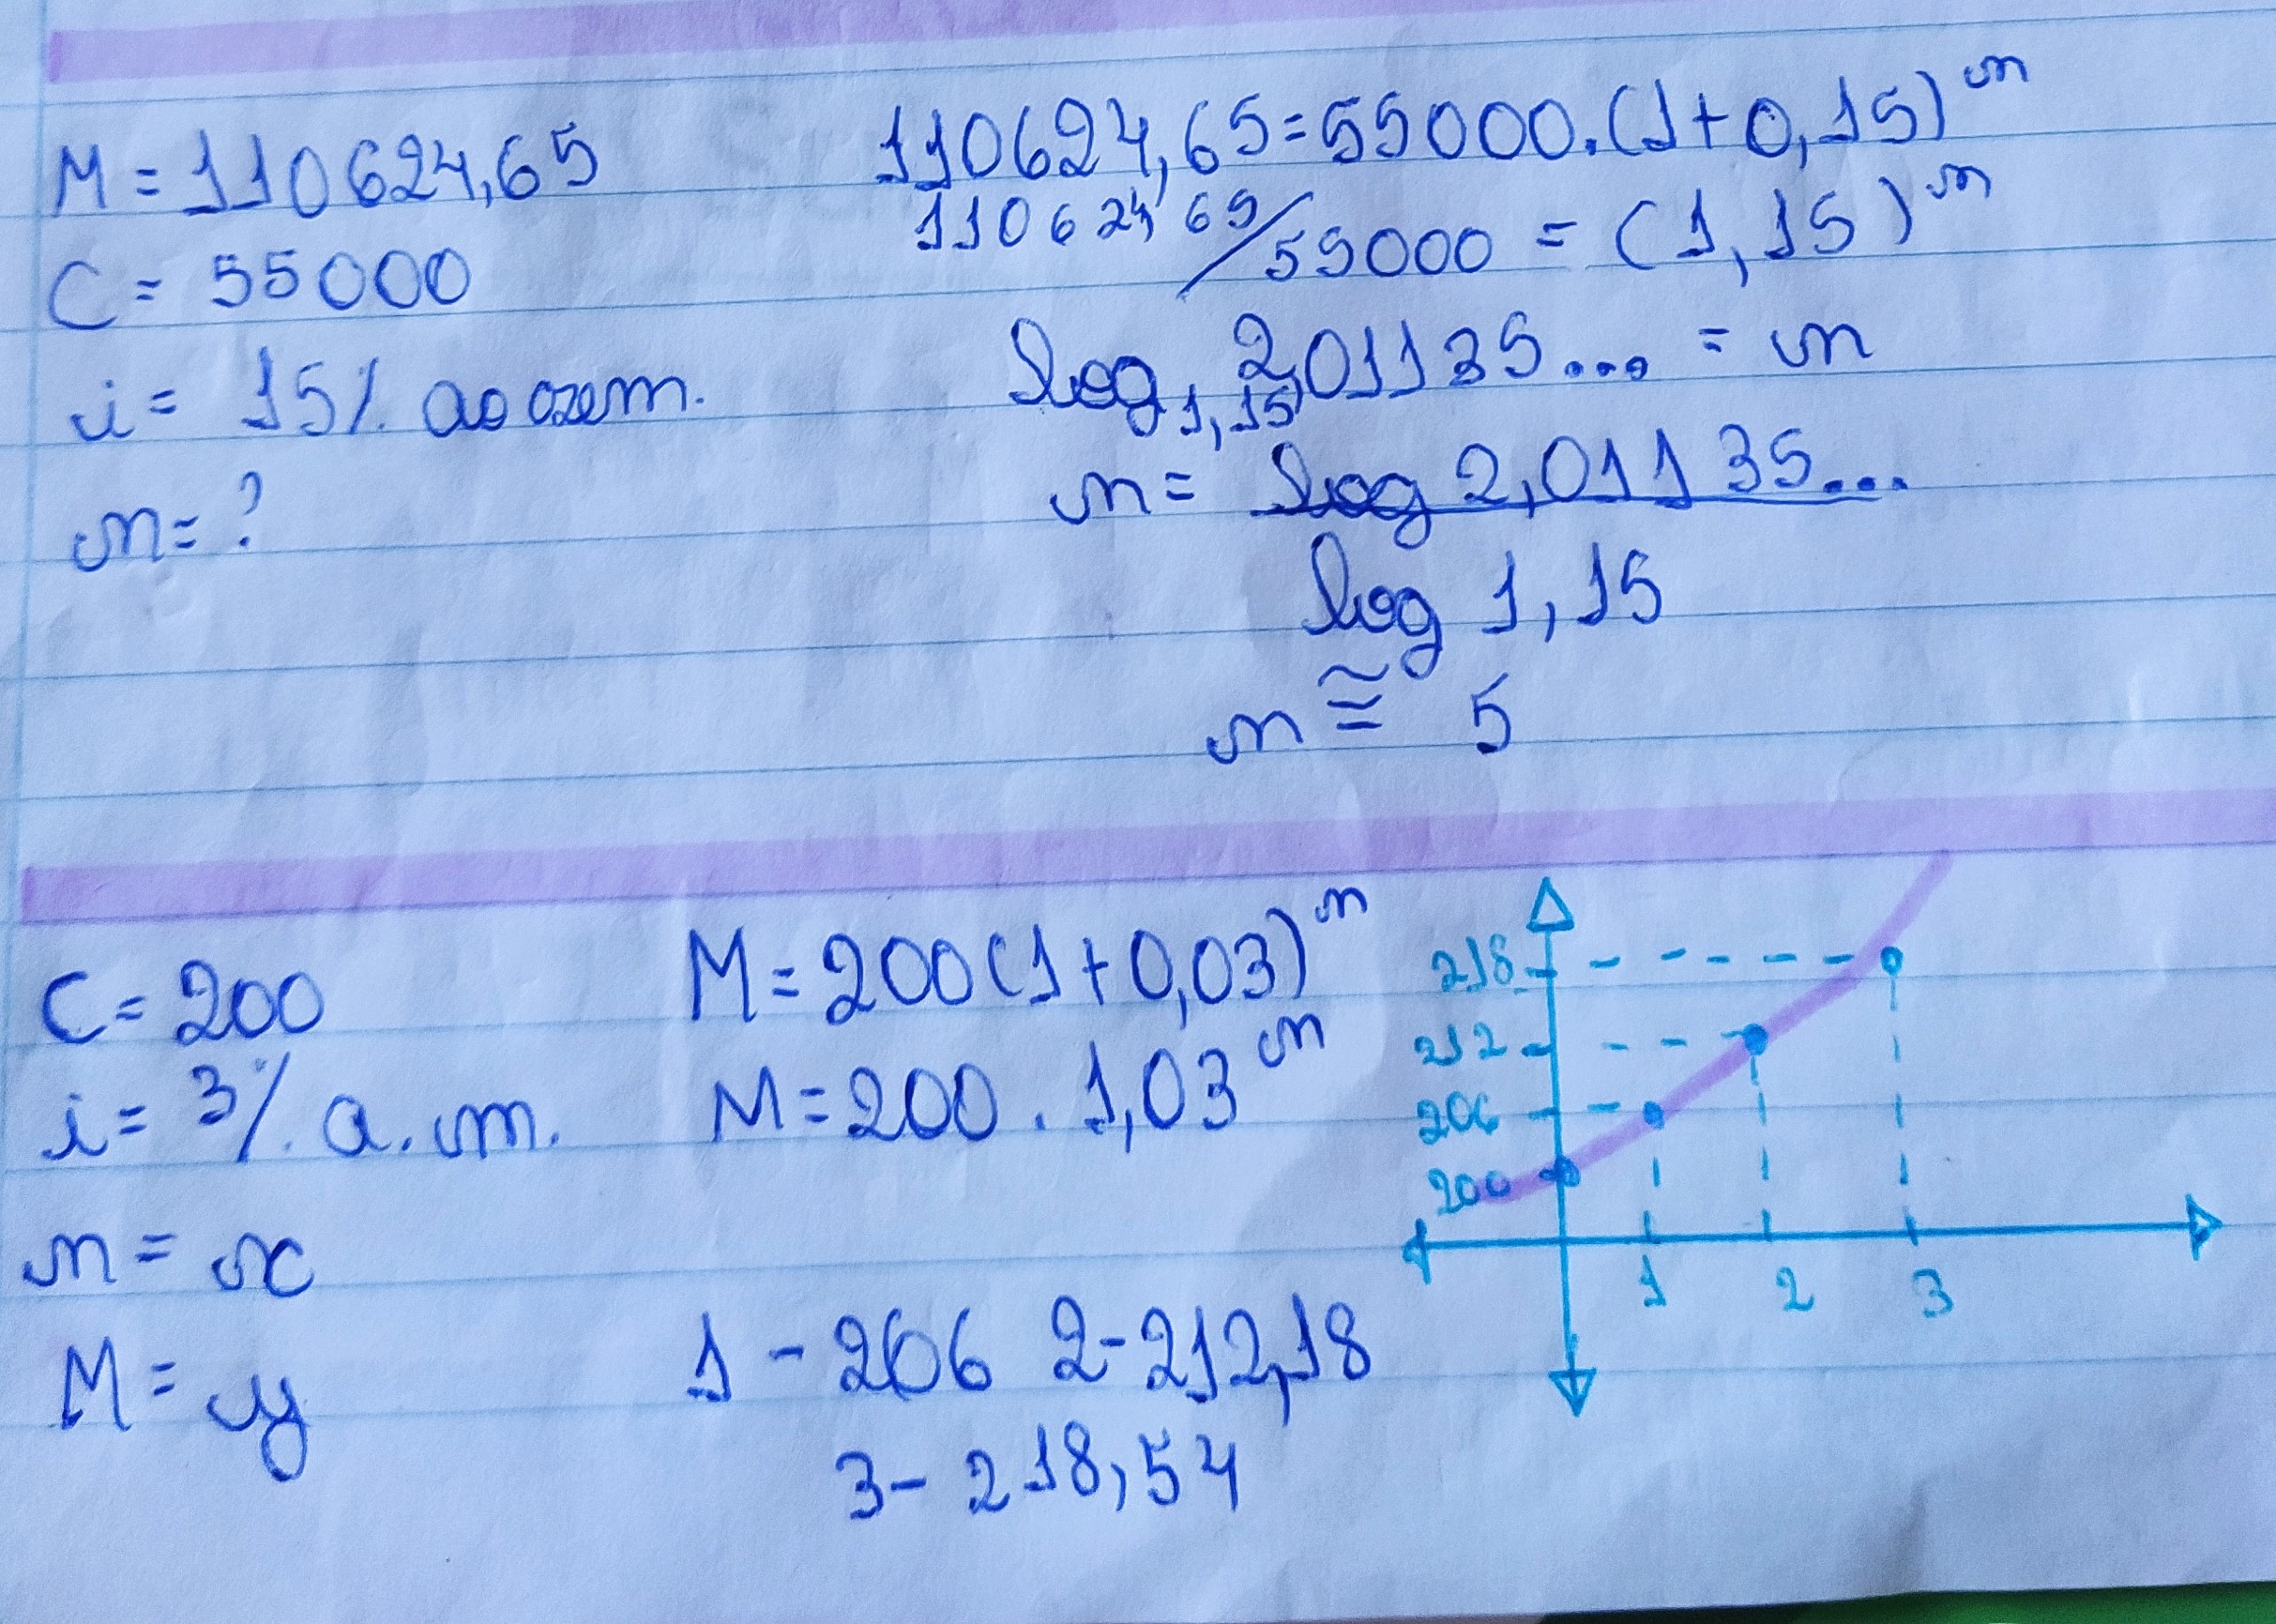 M = 110624,65
C = 55000
i = 15% ao sem.
n = ?
110624,65 = 55000.(1+0,15)^n
110624,65/55000 = (1,15)^n
log₁,₁₅ 2,01135... = n
n = log 2,01135...
log 1,15
n ≅ 5
C = 200
i = 3% a.m.
n = x
M = y
M = 200(1+0,03)^n
M = 200 . 1,03^n
1 - 206 2 - 212,18
3 - 218,54
218
212
206
200
1 2 3